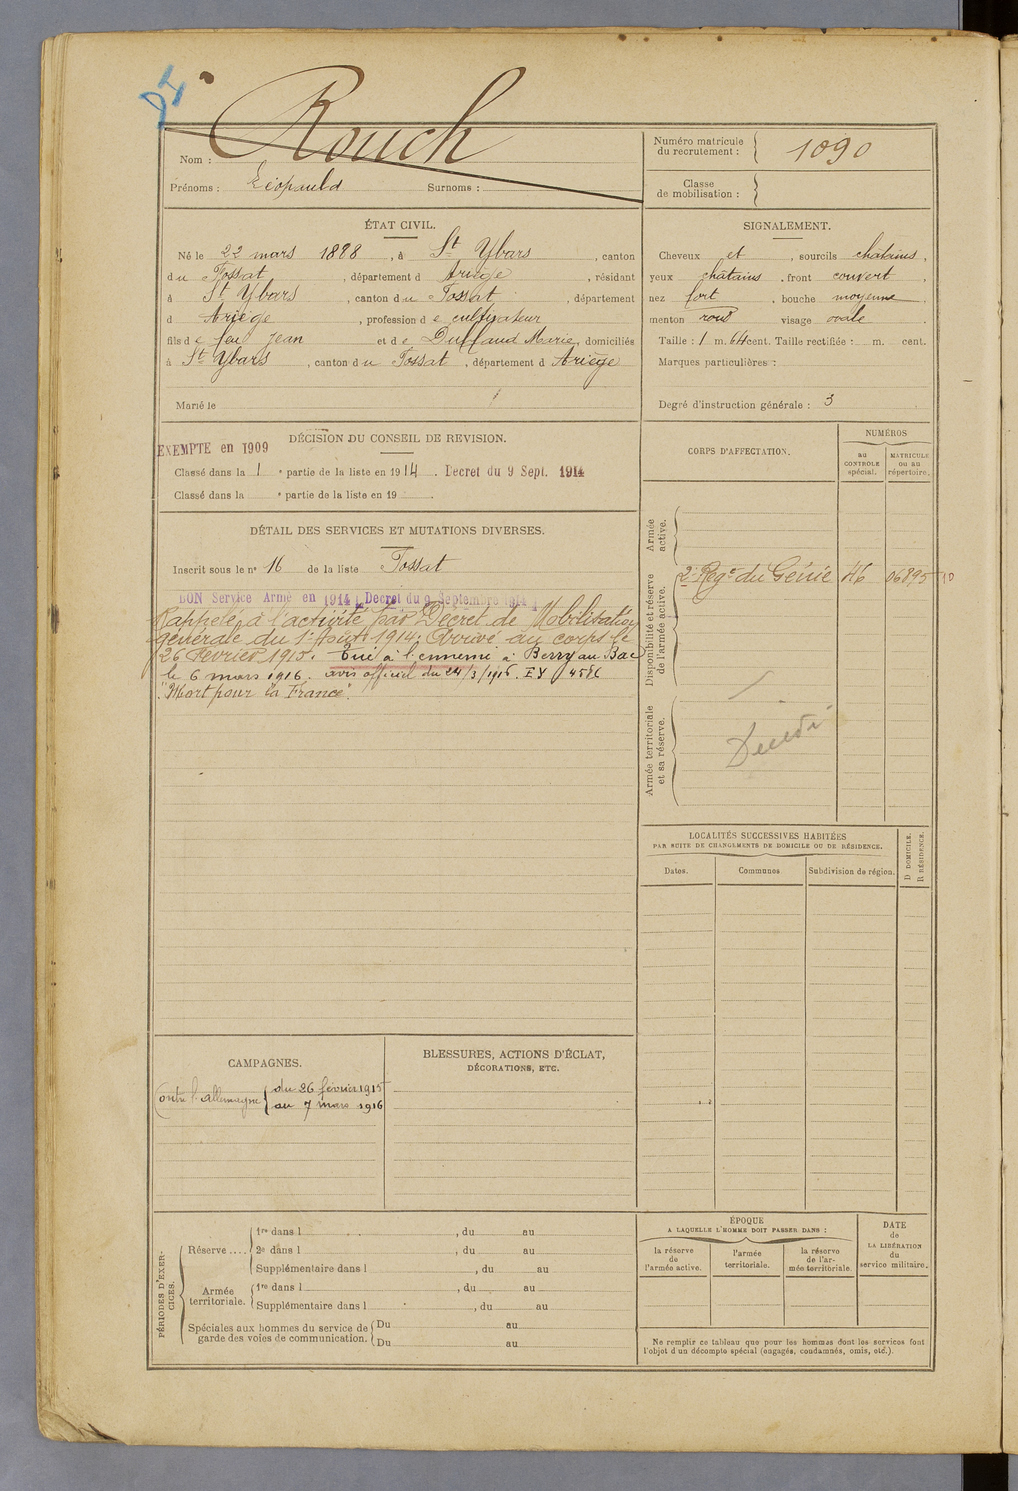 Rouch
Nom :
Prénoms : Léopauld Surnoms :
Numéro matricule
du recrutement : 1090
Classe
de mobilisation :
ÉTAT CIVIL.
Né le 22 mars 1888, à St Ybars, canton
du Fossat, département d Ariège, résidant
à St Ybars, canton du Fossat, département
d Ariège, profession de cultivateur
fils de feu Jean et de Duffaud Marie, domiciliés
à St Ybars, canton du Fossat, département d Ariège
Marié le
SIGNALEMENT.
Cheveux et, sourcils châtains,
yeux châtains, front couvert,
nez fort, bouche moyenne,
menton rond visage ovale.
Taille : 1 m. 64 cent. Taille rectifiée : m. cent.
Marques particulières :
Degré d'instruction générale : 3
DÉCISION DU CONSEIL DE REVISION.
EXEMPTE en 1909
Classé dans la 1 e partie de la liste en 1914. Decret du 9 Sept. 1914
Classé dans la e partie de la liste en 19 .
DÉTAIL DES SERVICES ET MUTATIONS DIVERSES.
Inscrit sous le n° 16 de la liste Fossat
BON Service Armé en 1914 Decret du 9 Septembre 1914
Rappelé à l'activité par Décret de Mobilisation
générale du 1er Août 1914. Arrivé au corps le
26 Février 1915. Tué à l'ennemi à Berry au Bac
le 6 mars 1916. avis officiel du 24/3/1916. EY 4586
"Mort pour la France".
CORPS D'AFFECTATION.
NUMÉROS
au
CONTROLE
spécial.
MATRICULE
ou au
répertoire.
Armée
active.
Disponibilité et réserve
de l'armée active.
2e Regt du Génie 46 06895 10
Armée territoriale
et sa réserve.
LOCALITÉS SUCCESSIVES HABITÉES
PAR SUITE DE CHANGEMENTS DE DOMICILE OU DE RÉSIDENCE.
Dates.
Communes
Subdivision de région.
D DOMICILE.
R RÉSIDENCE.
CAMPAGNES.
Contre l'Allemagne du 26 février 1915
au 7 mars 1916
BLESSURES, ACTIONS D'ÉCLAT,
DÉCORATIONS, ETC.
PÉRIODES D'EXER-
CICES.
Réserve ....
1re dans l , du au
2e dans l , du au
Supplémentaire dans l , du au
Armée
territoriale.
1re dans l , du au
Supplémentaire dans l , du au
Spéciales aux hommes du service de
garde des voies de communication.
Du au
Du au
ÉPOQUE
A LAQUELLE L'HOMME DOIT PASSER DANS :
la réserve
de
l'armée active.
l'armée
territoriale.
la réserve
de l'ar-
mée territoriale.
DATE
de
LA LIBÉRATION
du
service militaire.
Ne remplir ce tableau que pour les hommes dont les services font
l'objet d'un décompte spécial (engagés, condamnés, omis, etc.).